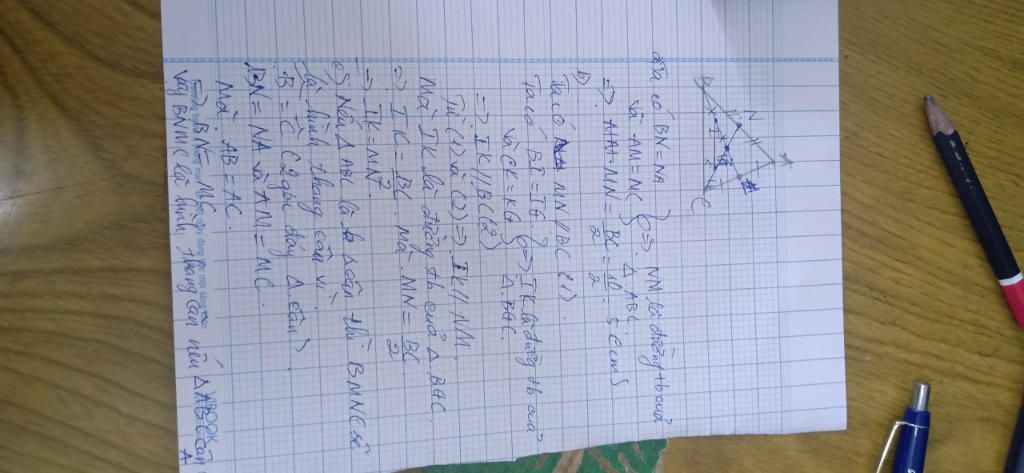 A
N
M
G
I
K
B
C
a) Ta có BN = NA
và AM = MC } => NM là đường tb của Δ ABC.
=> MN = BC/2 = 10/2 = 5 (cm)
b)
Ta có MN // BC (1).
Ta có BI = IG.
và CK = KG } => IK là đường tb của Δ BGC.
=> IK // BC (2)
Từ (1) và (2) => IK // NM.
Mà IK là đường tb của Δ BGC
=> IK = BC/2. Mà MN = BC/2
=> IK = MN.
c) Nếu Δ ABC là Δ cân thì BMNC sẽ
là hình thang cân vì.
B̂ = Ĉ (2 góc đáy Δ cân)
BN = NA và AM = MC.
Mà AB = AC.
=> BN = MC.
Vậy BNMC là hình thang cân nếu Δ ABC cân
A